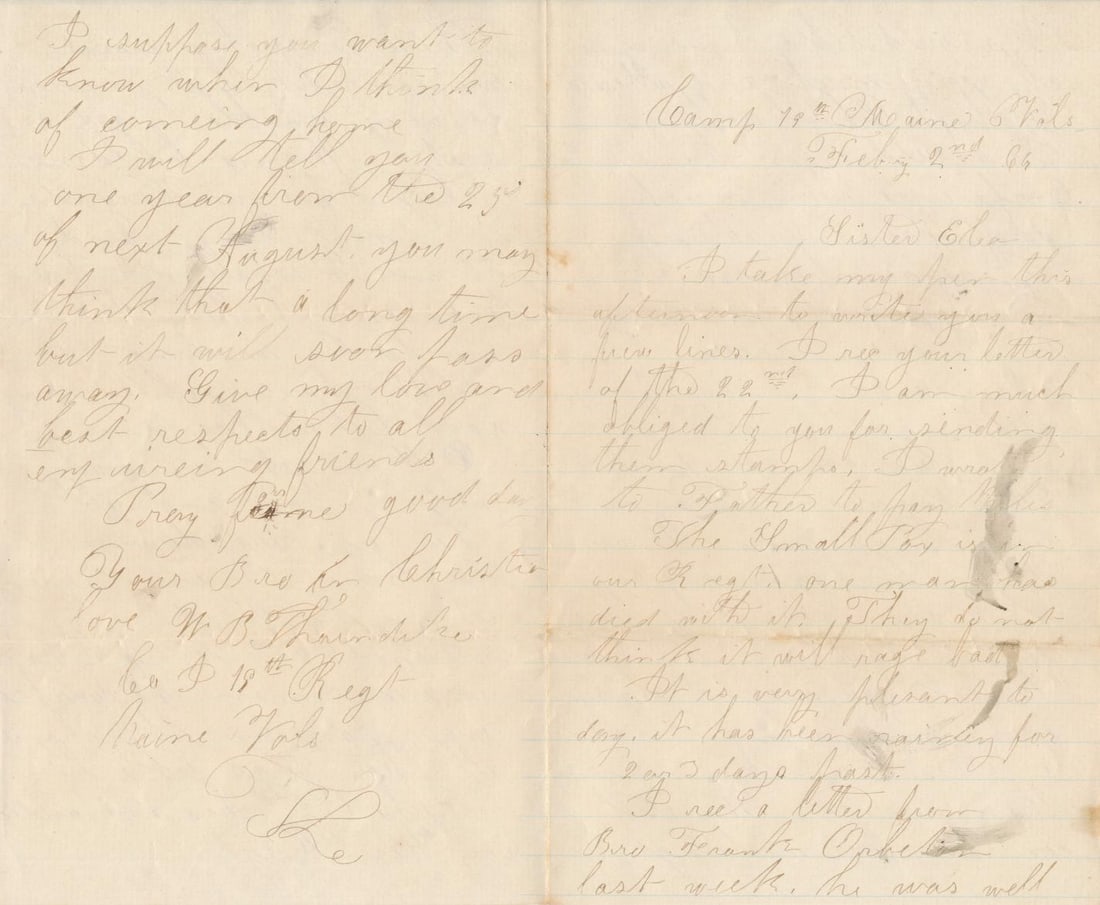 Camp 19th Maine Vols
Feby 2nd 66
Sister Elea
I take my pen this
afternoon to write you a
few lines. I rec your letter
of the 22nd. I am much
obliged to you for sending
them stamps. I wrote
to Father to pay
The Small Pox is in
our Regt. one man has
died with it. They do not
think it will rage bad
It is very plesant to
day. it has been rainey for
2 or 3 days past.
I rec a letter from
Bro Frank
last week. he was well
I suppose you want to
know when I think
of comeing home
I will tell you
one year from the 25
of next August. you may
think that a long time
but it will soon pass
away. Give my love and
best respects to all
enquireing friends
Prey for me good day
Your Bro in Christian
love W B Thorndike
Co I 19th Regt
Maine Vols